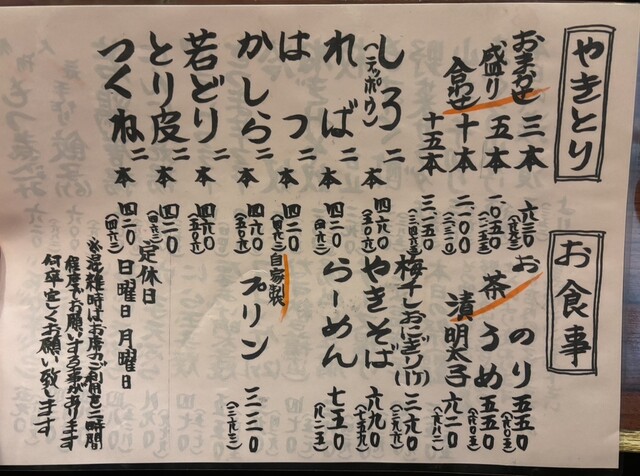 やきとり
おまかせ 三本 六三〇 (六九三)
盛り 五本 一、〇五〇
合わせ 十本 二、一〇〇
十五本 三、一五〇
しろ 二本 四六〇 (五〇六)
(テッポウ)
れば 二本 四二〇 (四六二)
はつ 二本 四二〇 (四六二)
かしら 二本 四六〇 (五〇六)
若どり 二本 五〇〇
とり皮 二本 四二〇 (四六二)
つくね 二本 四二〇 (四六二)
お食事
お茶漬
のり 五五〇 (六〇五)
うめ 五五〇 (六〇五)
明太子 六二〇 (六八二)
梅干しおにぎり(1ケ) 三六〇 (三九六)
やきそば 六九〇 (七五九)
らーめん 七五〇 (八二五)
自家製
プリン 三三〇 (三六三)
定休日
日曜日 月曜日
※混雑時はお席のご利用を二時間
程度でお願いする事があります
何卒宜しくお願い致します